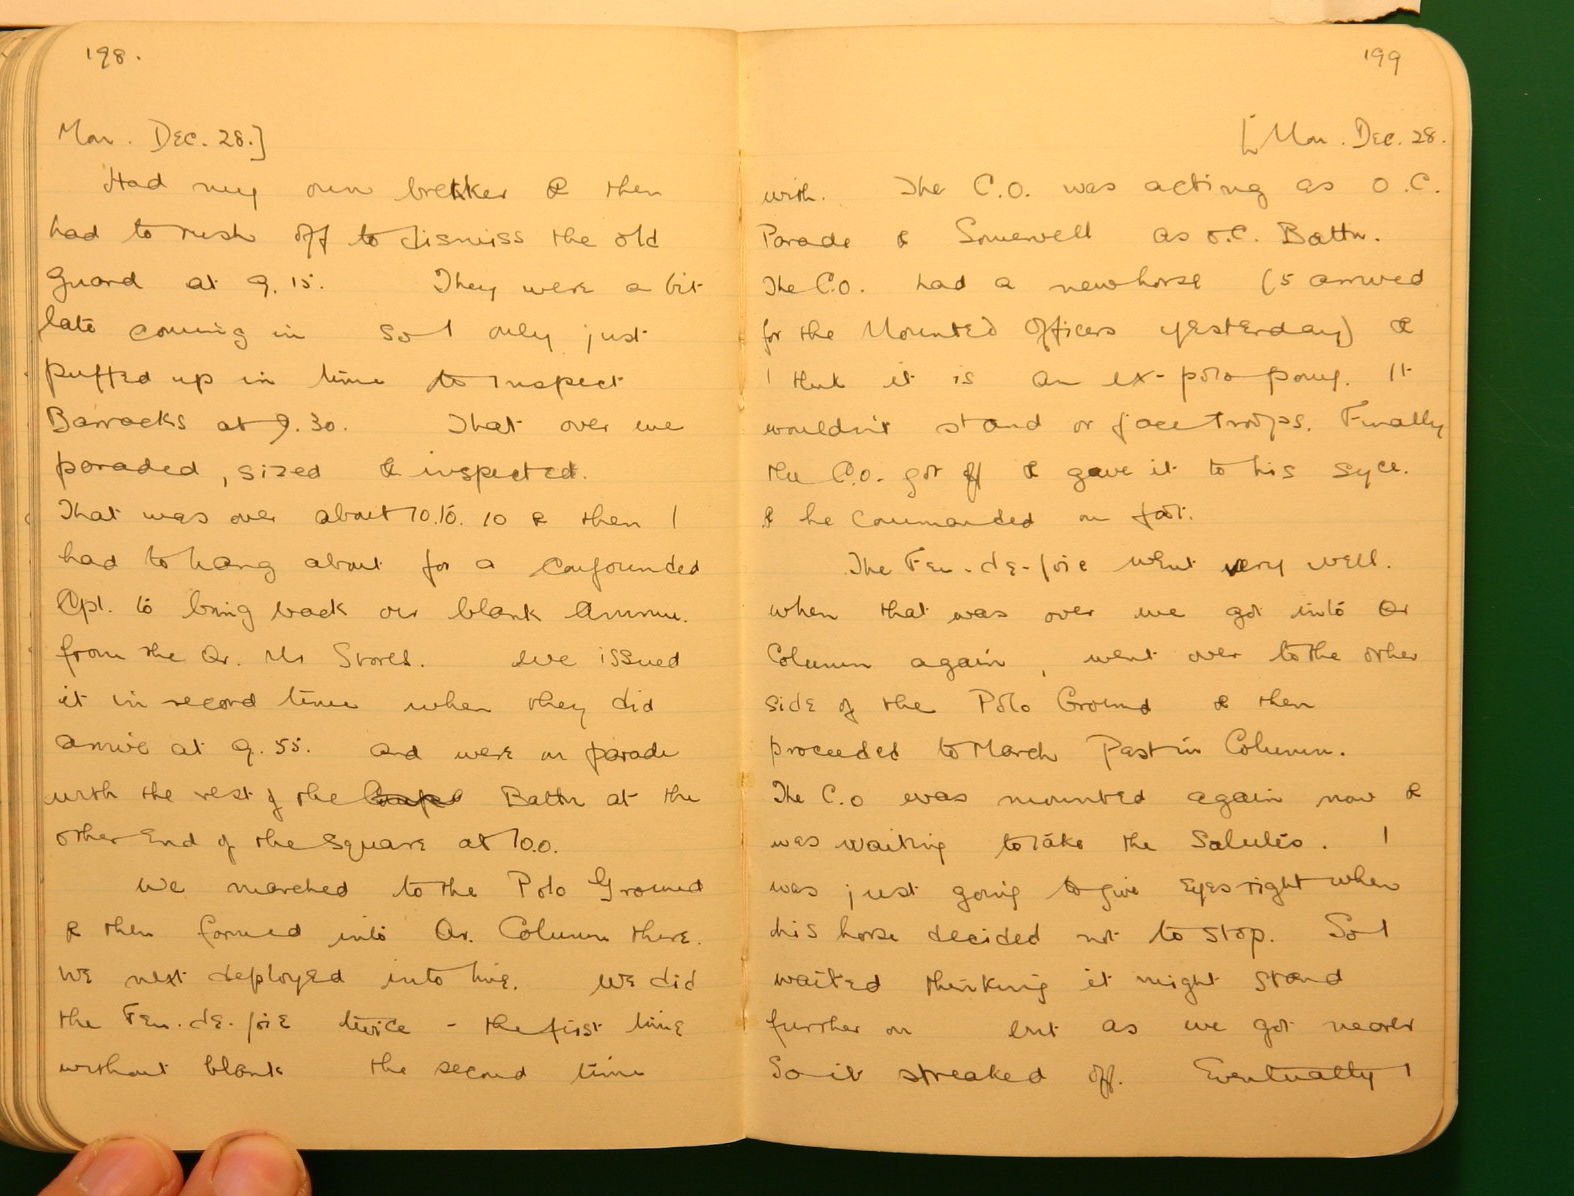 198.
Mon. Dec. 28.]
Had my own brekker & then
had to rush off to dismiss the old
guard at 9.15. They were a bit
late coming in so I only just
puffed up in time to inspect
Barracks at 9.30. That over we
paraded, sized & inspected.
That was over about 10.10. 10 & then I
had to hang about for a confounded
Cpl. to bring back our blank Ammn.
from the Qr. Mr Stores. We issued
it in record time when they did
arrive at 9.55. and were on parade
with the rest of the Battn at the
other end of the square at 10.0.
We marched to the Polo Ground
& then formed into Qr. Column there.
We next deployed into line. We did
the Feu-de-joie twice - the first time
without blank the second time
199
[Mon. Dec. 28.
with. The C.O. was acting as O.C.
Parade & Somervell as O.C. Battn.
The C.O. had a new horse (5 arrived
for the Mounted Officers yesterday) &
I think it is an ex-polo pony. It
wouldn't stand or face troops. Finally
the C.O. got off & gave it to his syce.
& he commanded on foot.
The Feu-de-joie went very well.
When that was over we got into Qr
Column again, went over to the other
side of the Polo Ground & then
proceeded to March Past in Column.
The C.O was mounted again now &
was waiting to take the Salutes. I
was just going to give Eyes right when
his horse decided not to stop. So I
waited thinking it might stand
further on but as we got nearer
So it streaked off. Eventually I